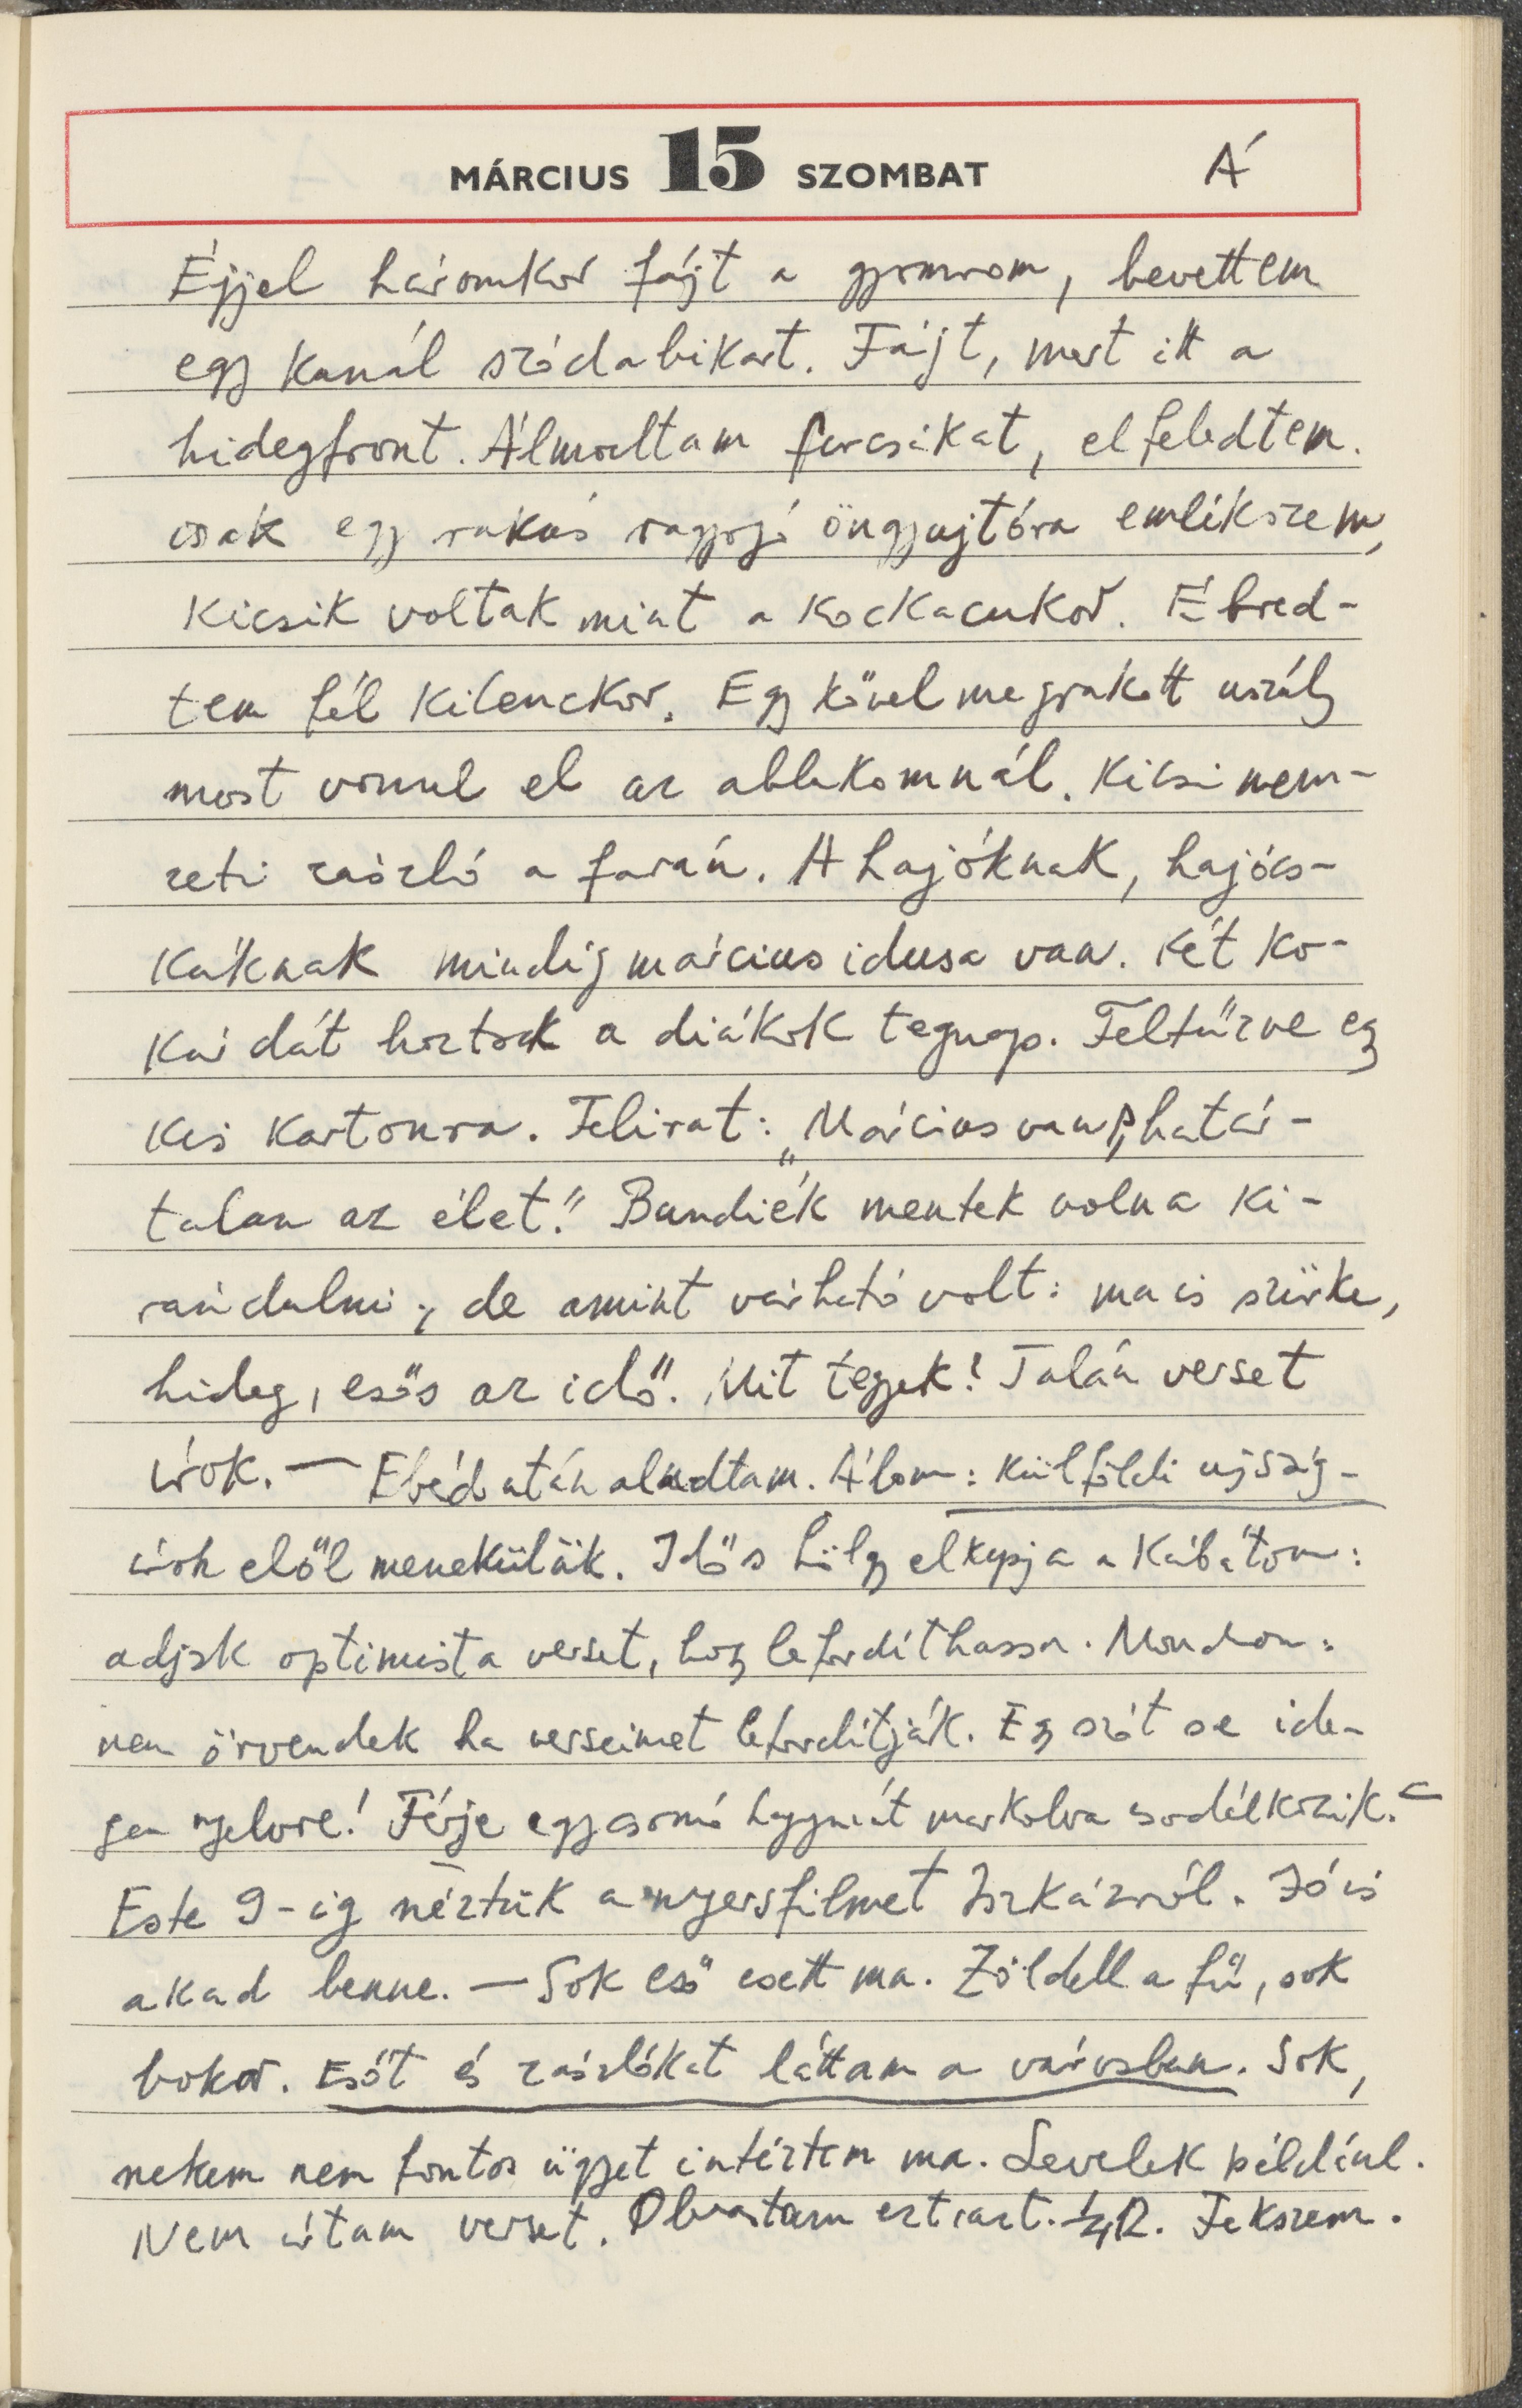 MÁRCIUS 15 SZOMBAT Á
Éjjel háromkor fájt a gyomrom, bevettem
egy kanál szódabikart. Fájt, mert itt a
hidegfront. Álmodtam furcsákat, elfeledtem.
csak egy rakás ragyogó öngyujtóra emlékszem,
kicsik voltak mint a kockacukor. Ébred-
tem fél kilenckor. Egy kővel megrakott uszály
most vonul el az ablakomnál. Kicsi nem-
zeti zászló a farán. A hajóknak, hajócs-
káknak mindig március idusa van. Két ko-
kárdát hoztak a diákok tegnap. Feltűzve egy
kis kartonra. Felirat: „Március van, határ-
talan az élet." Bandiék mentek volna ki-
rándulni, de amint várható volt: ma is szürke,
hideg, esős az idő. Mit tegyek! Talán verset
írok. — Ebéd után aludtam. Álom: külföldi ujság-
írók elől menekülök. Idős hölgy elkapja a kabátom:
adjak optimista verset, hogy lefordíthassa. Mondom:
nem örvendek ha verseimet lefordítják. Egy szót se ide-
gen nyelvre! Férje egy csomó hagymát markolva csodálkozik. —
Este 9-ig néztük a nyersfilmet Iszkázról. Jó is
akad benne. — Sok eső esett ma. Zöldell a fű, sok
bokor. Esőt és zászlókat láttam a városban. Sok,
nekem nem fontos ügyet intéztem ma. Levelek például.
Nem írtam verset. Olvastam ezt-azt. Fekszem.